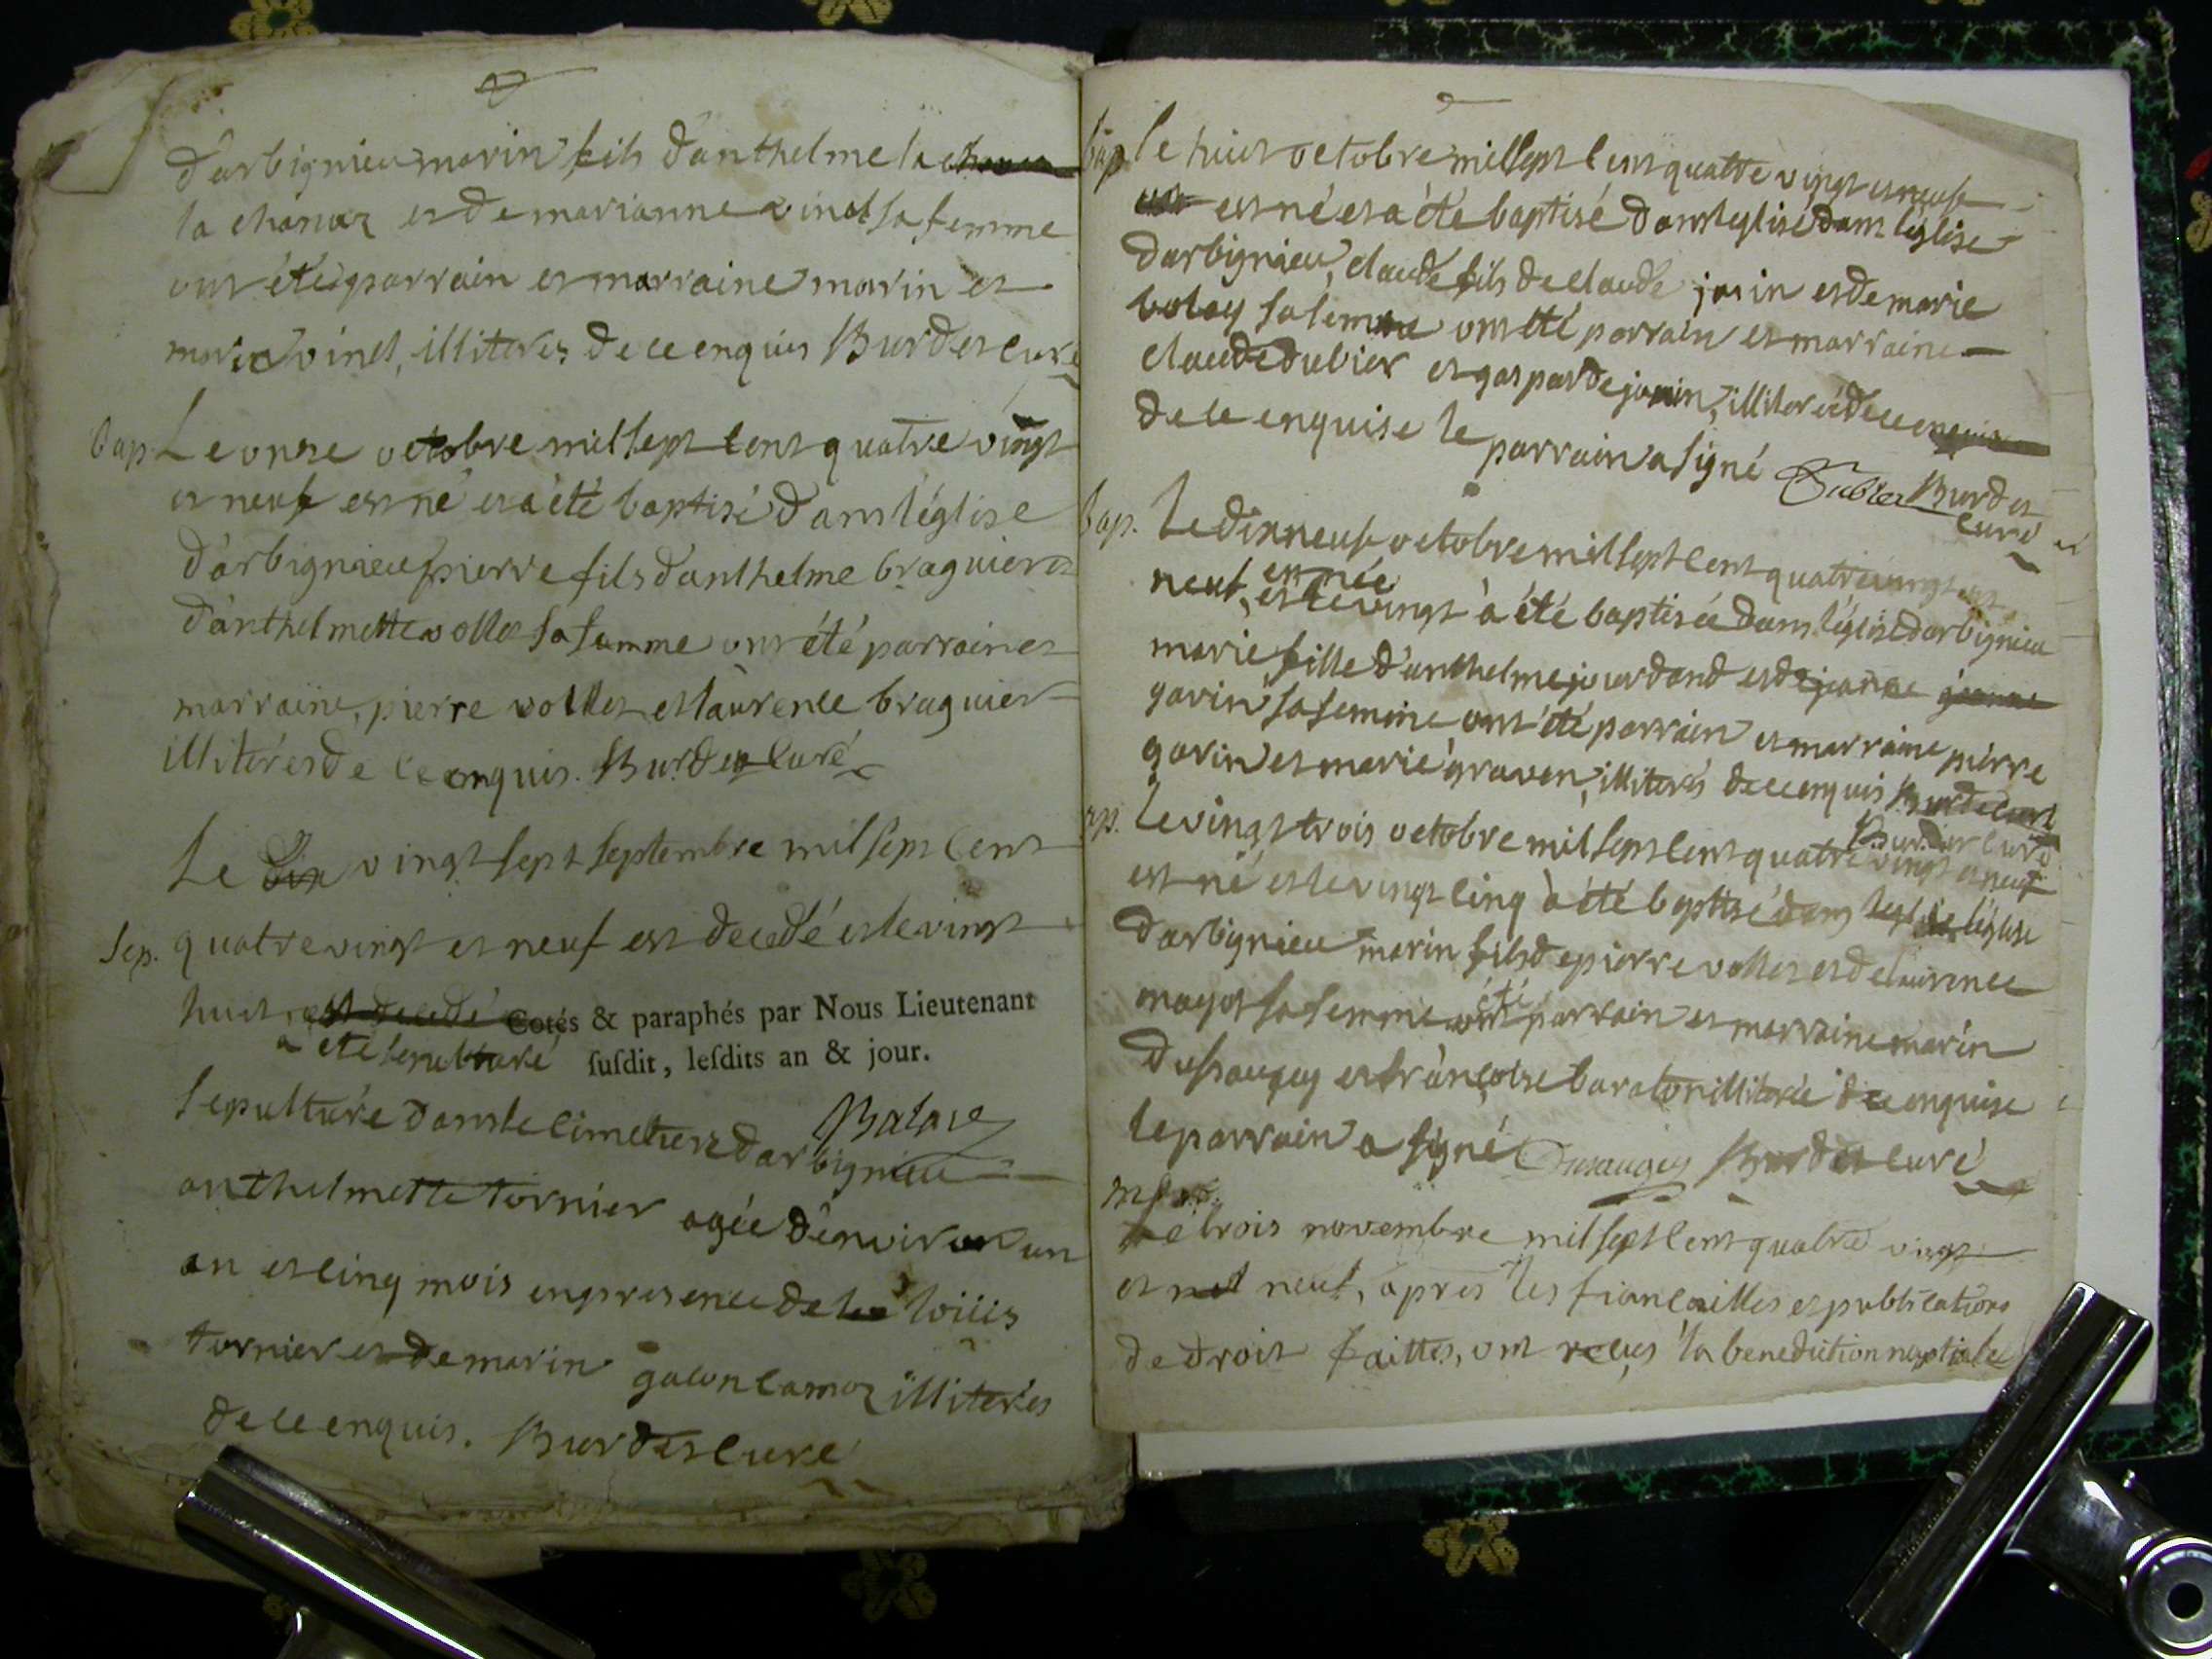 d'arbignieu marin fils d'anthelme la
la chanaz et de marianne vinet sa femme
ont été parrain et marraine marin et
marie vinet, illiterés de ce enquis Burdet curé
bap. Le onze octobre mil sept cent quatre vingt
et neuf est né et a été baptisé dans l'église
d'arbignieu pierre fils d'anthelme braguier et
d'anthelmette vollet sa famme ont été parrain et
marraine, pierre vollet et laurence braguier
illiterés de ce enquis. Burdet curé
Le dix vingt sept septembre mil sept cent
sep. quatre vingt et neuf est decedé et le vingt
huit, est decedé Cotés & paraphés par Nous Lieutenant
a été sepulturé ſuſdit, leſdits an & jour.
sepulture dans le cimetiere d'arbignieu Balare
anthelmette tornier agée d'environ un
an et cinq mois en presence de loüis
tornier et de marin illiterés
de ce enquis. Burdet curé
bap. le huit octobre mil sept cent quatre vingt et neuf
est né et a été baptisé dans leglise dans l'église
d'arbignieu, claude fils de claude janin et de marie
bolay sa femme ont été parrain et marraine
claude dubier et gasparde janin, illiterée de ce enquise
de ce enquise le parrain a signé Dubier Burdet
curé
bap. Le dix neuf octobre mil sept cent quatre vingt et
est née
neuf, et le vingt a été baptisée dans l'église d'arbignieu
marie fille d'anthelme jourdand et de jeanne jeanne
gavin sa femme ont été parrain et marraine pierre
gavin et marie graven, illiterés de ce enquis Burdet curé
Burdet curé
ap. Le vingt trois octobre mil sept cent quatre vingt et neuf
est né et le vingt cinq a été baptisé dans l'église
d'arbignieu marin fils de pierre vollet et de laurence
été
magot sa femme ont parrain et marraine marin
dusaugey et françoise baraton illiterée de ce enquise
le parrain a signé Dusaugey Burdet curé
Le trois novembre mil sept cent quatre vingt
et neuf, apres les fiancailles et publications
de droit faittes, ont reçus la benediction nuptiale